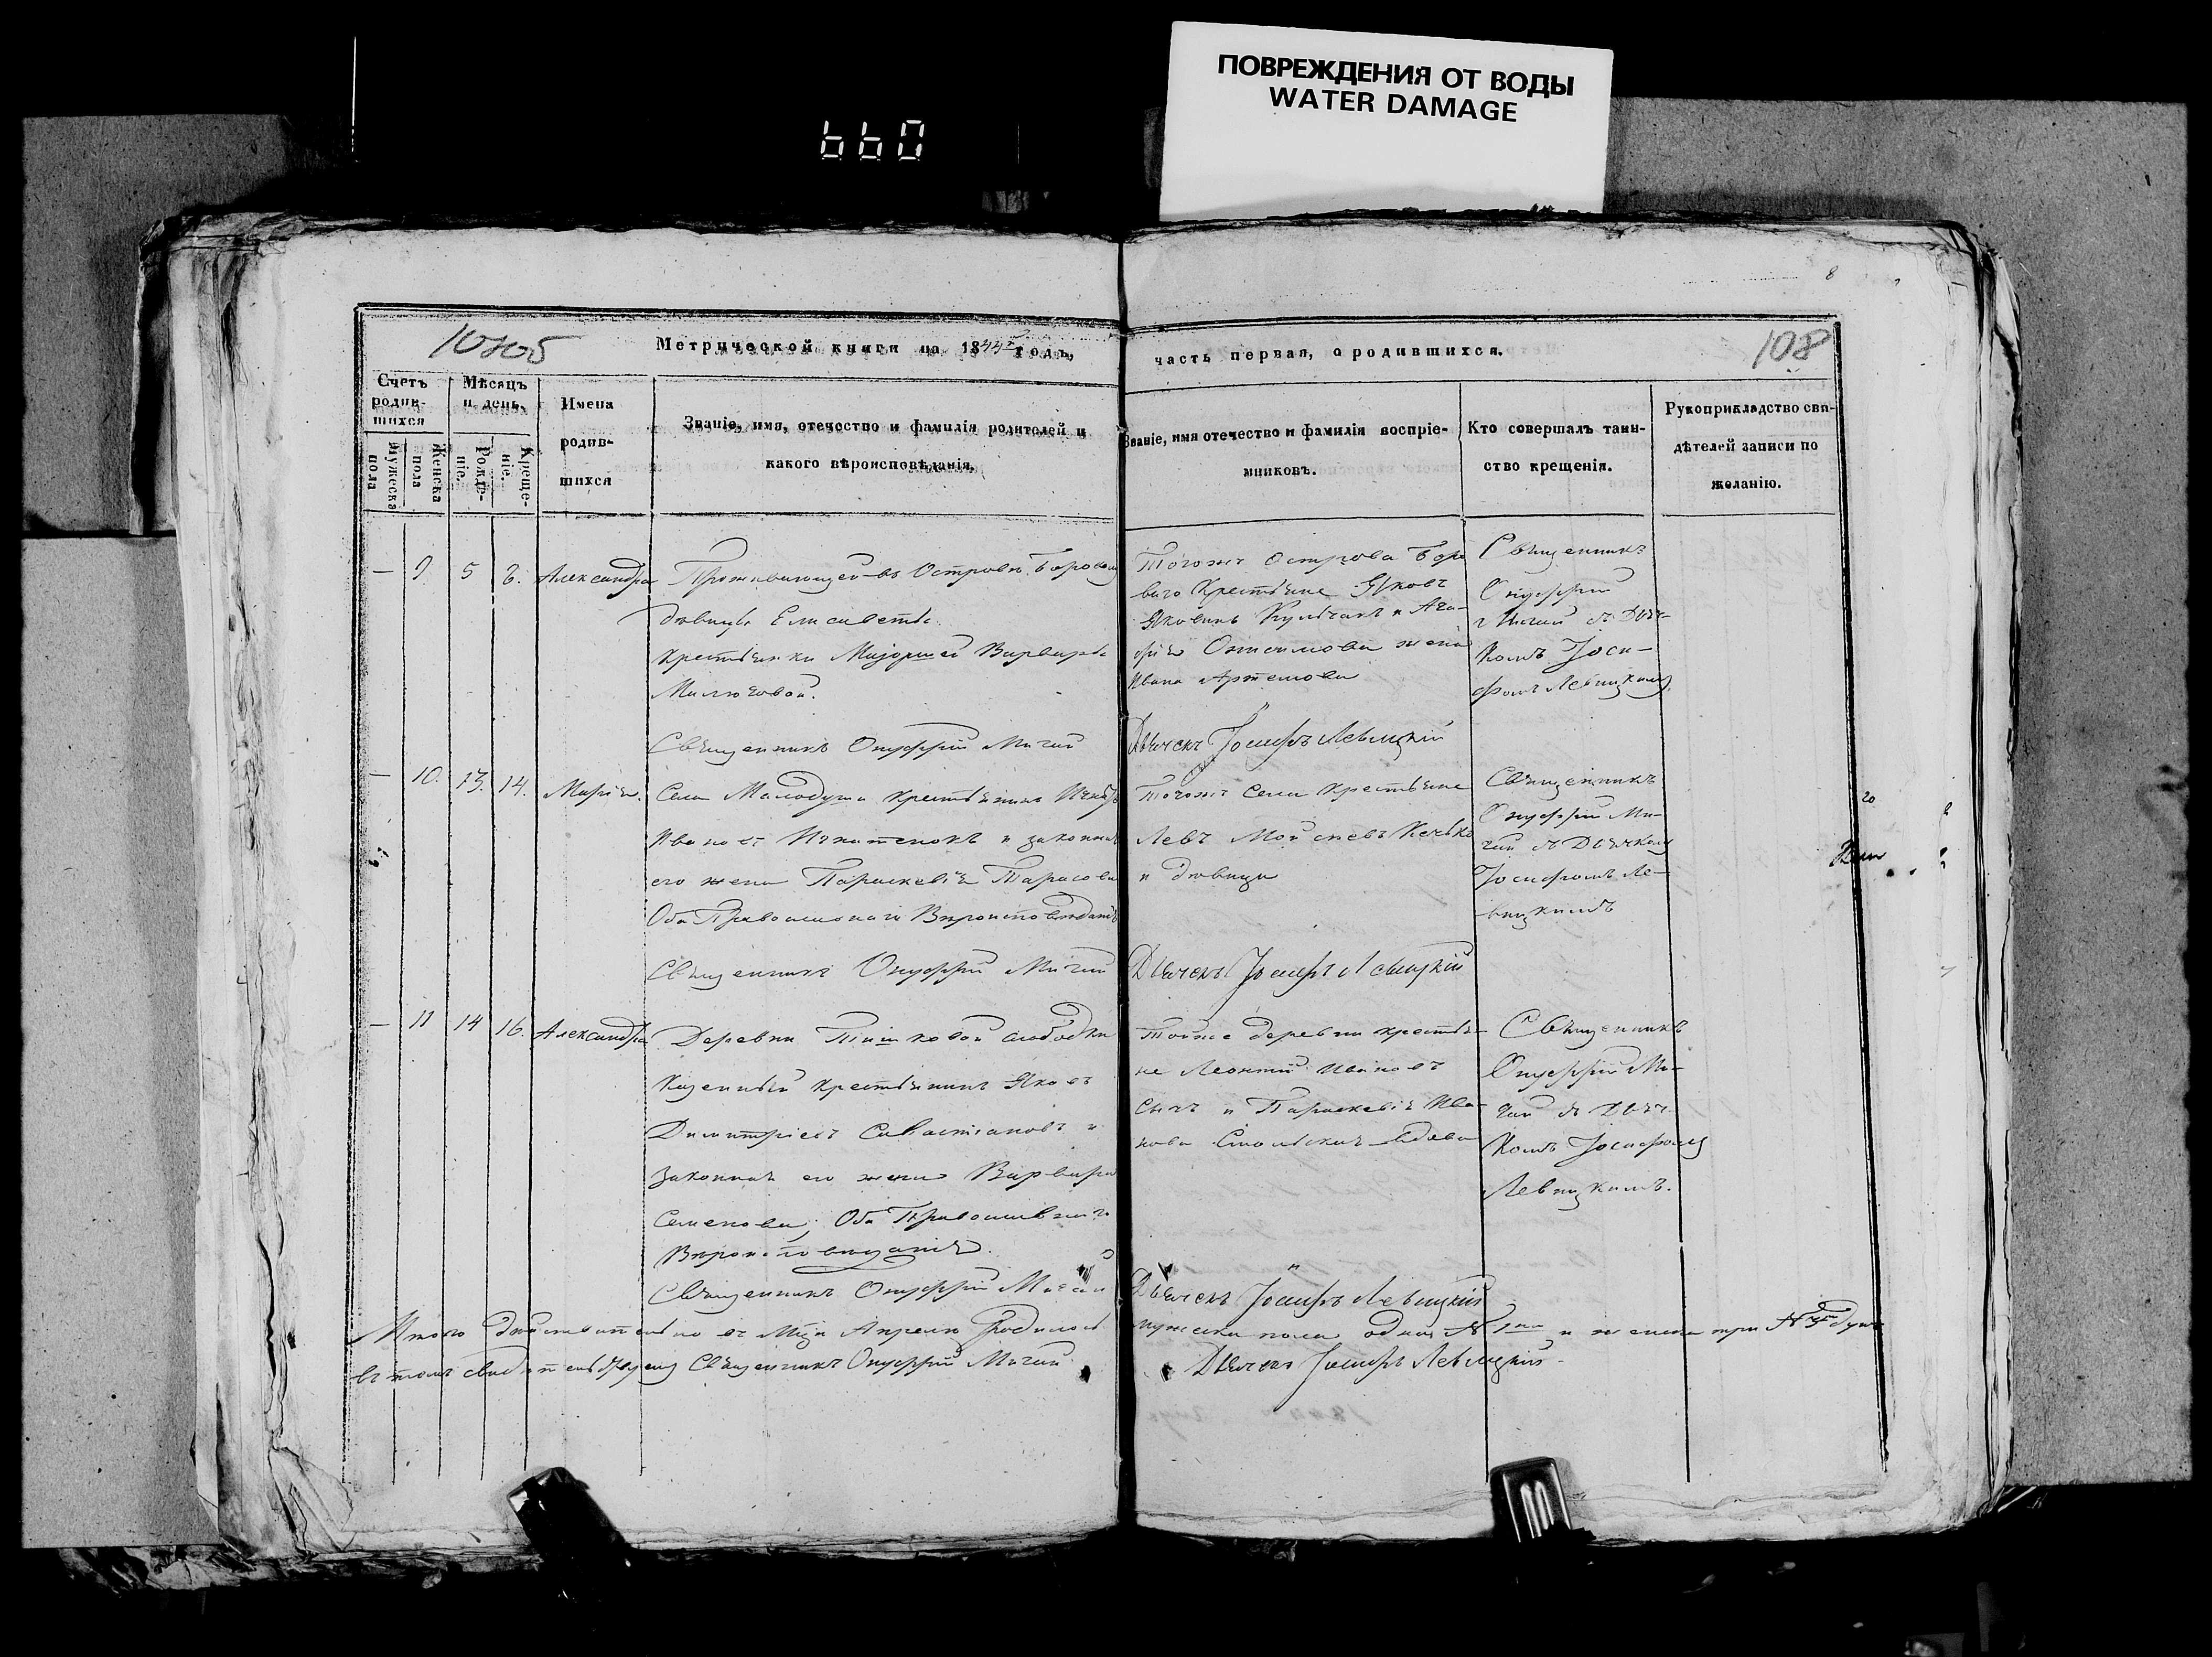 ПОВРЕЖДЕНИЯ ОТ ВОДЫ
WATER DAMAGE
660
8
Метрической книги на 1844й годъ,
часть первая, о родившихся.
108
Счетъ родив-шихся
Мужеска пола
Женска пола
Мѣсяцъ и день.
Рожде-ніе.
Креще-ніе.
Имена родив-шихся
Званіе, имя, отечество и фамилія родителей и
какого вѣроисповѣданія.
Званіе, имя отечество и фамилія воспріе-
мниковъ.
Кто совершалъ таин-
ство крещенія.
Рукоприкладство сви-
дѣтелей записи по
желанію.
— 9. 5 6. Александра
Проживающей въ Островѣ Боровом
дѣвицы Елисаветы
крестьянки Маіоршей Варвары
Милюковой.
Священникъ Онуфрій Мигай
Тогожъ Острова Боро
ваго Крестьяне Яковъ
Яковинъ Кульчакъ и Ага-
фія жена
Ивана Артемова
Дьячекъ Іосифъ Левицкій
Священникъ
Онуфрій
Мигай съ Дьяч-
комъ Іоси-
фомъ Левицкимъ
— 10. 13. 14. Марія.
Села Малодуша крестьянинъ
Ивановъ и законная
его жена Параскевія Тарасова
Оба Православнаго Вѣроисповѣданія
Священникъ Онуфрій Мигай
Тогожъ Села Крестьяне
Левъ Мойсіевъ
и дѣвица
Дьячекъ Іосифъ Левицкій
Священникъ
Онуфрій Ми-
гай съ Дьячкомъ
Іосифомъ Ле-
вицкимъ
— 11 14 16. Александра
Деревни Тишковой слободки
Казенный крестьянинъ Яковъ
Димитріевъ Савастіановъ и
законная его жена Варвара
Семенова, Оба Православнаго
Вѣроисповѣданія.
Священникъ Онуфрій Мигай
Тойже деревни крестья-
не Леонтій Ивановъ
Сычъ и Параскевія Ива-
нова вдова
Дьячекъ Іосифъ Левицкій
Священникъ
Онуфрій Ми-
гай съ Дьяч-
комъ Іосифомъ
Левицкимъ.
Итого дѣйствительно въ Мцѣ Апрелѣ родилось мужеска пола одна № 1на и женска три № 3 душ
въ томъ свидѣтельствуемъ Священникъ Онуфрій Мигай
Дьячекъ Іосифъ Левицкій